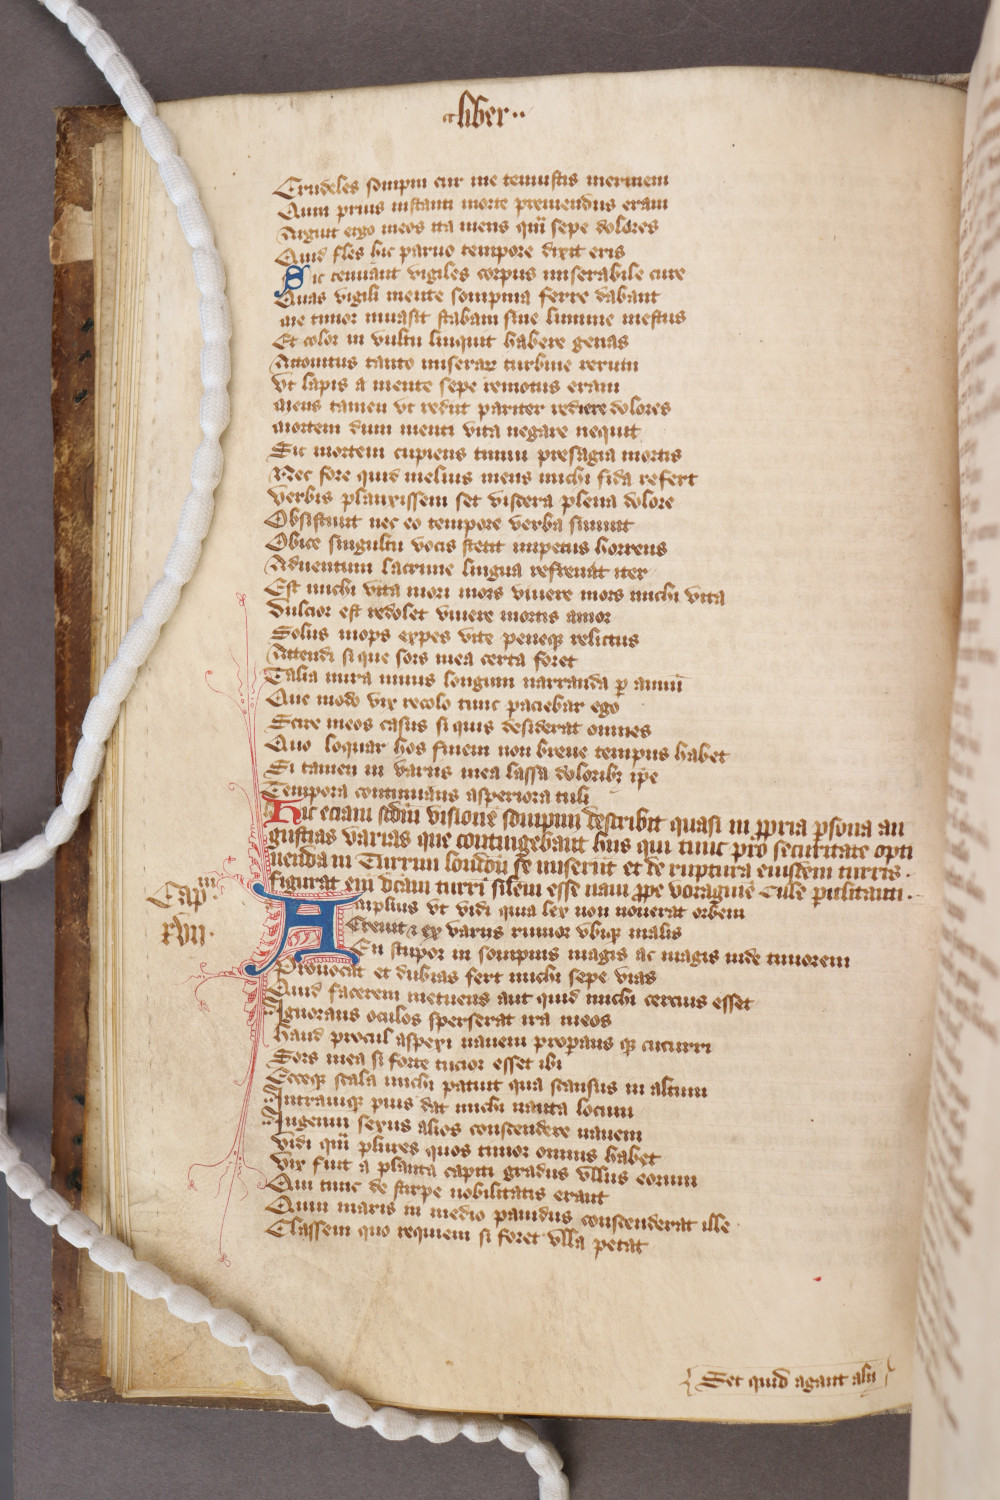 liber
Crudeles sompni cur me tenuistis inermem
Quin prius instanti morte premendus eram
Arguit ergo meos ita mens quin sepe dolores
Quid fles hic paruo tempore dixit eris
Sic tenuant vigiles corpus miserabile cure
Quas vigili mente sompnia ferre dabant
me timor inuasit stabam sine lumine mestus
Et color in vultu linquit habere genas
Attonitus tanto miserarum turbine rerum
vt lapis a mente sepe remotus eram
mens tamen vt rediit pariter rediere dolores
mortem dum menti vita negare nequit
Sic mortem cupiens timui presagia mortis
Nec fore quid melius mens michi fida refert
verbis planxissem set viscera plena dolore
Obsistunt nec eo tempore verba sinunt
Obice singultu vocis stetit impetus horrens
Aduentum lacrime lingua refrenat iter
Est michi vita mori mors viuere mors michi vita
dulcior est redolet viuere mortis amor
Solus inops expes vite peneque relictus
Attendi si que sors mea certa foret
Talia mira nimis longum narranda per annum
Que modo vix recolo tunc paciebar ego
Scire meos casus si quis desiderat omnes
Quo loquar hos finem non breue tempus habet
Si tamen in variis mea lassa doloribz ipe
Tempora continuans asperiora tuli
Hic eciam scdm visione sompnii describit quasi in ppria psona an
gustias varias que contingebant hiis qui tunc pro securitate opti
nenda in Turrim london se miserunt et de ruptura eiusdem turris
figurat em dcam turri silem esse naui ppe voragine Cille piclitanti
Cap.m
xvii.
Amplius vt vidi quia lex non nouerat orbem
Creuit & ex variis rumor vbique malis
En stupor in sompnis magis ac magis inde timorem
Prouocat et dubias fert michi sepe vias
Quid facerem metuens aut quid michi cercius esset
Ignorans oculos sperserat ira meos
haud procul aspexi nauem properans que cucurri
Sors mea si forte tucior esset ibi
Ecceque scala michi patuit qua scansus in altum
Intrauique pius dat michi nauta locum
Ingenui sexus alios conscendere nauem
vidi quin plures quos timor omnis habet
vix fuit a planta capiti gradus vllus eorum
Qui tunc de stirpe nobilitatis erant
Quin maris in medio pauidus conscenderat ille
Classem quo requiem si foret vlla petat
Set quid agant alii